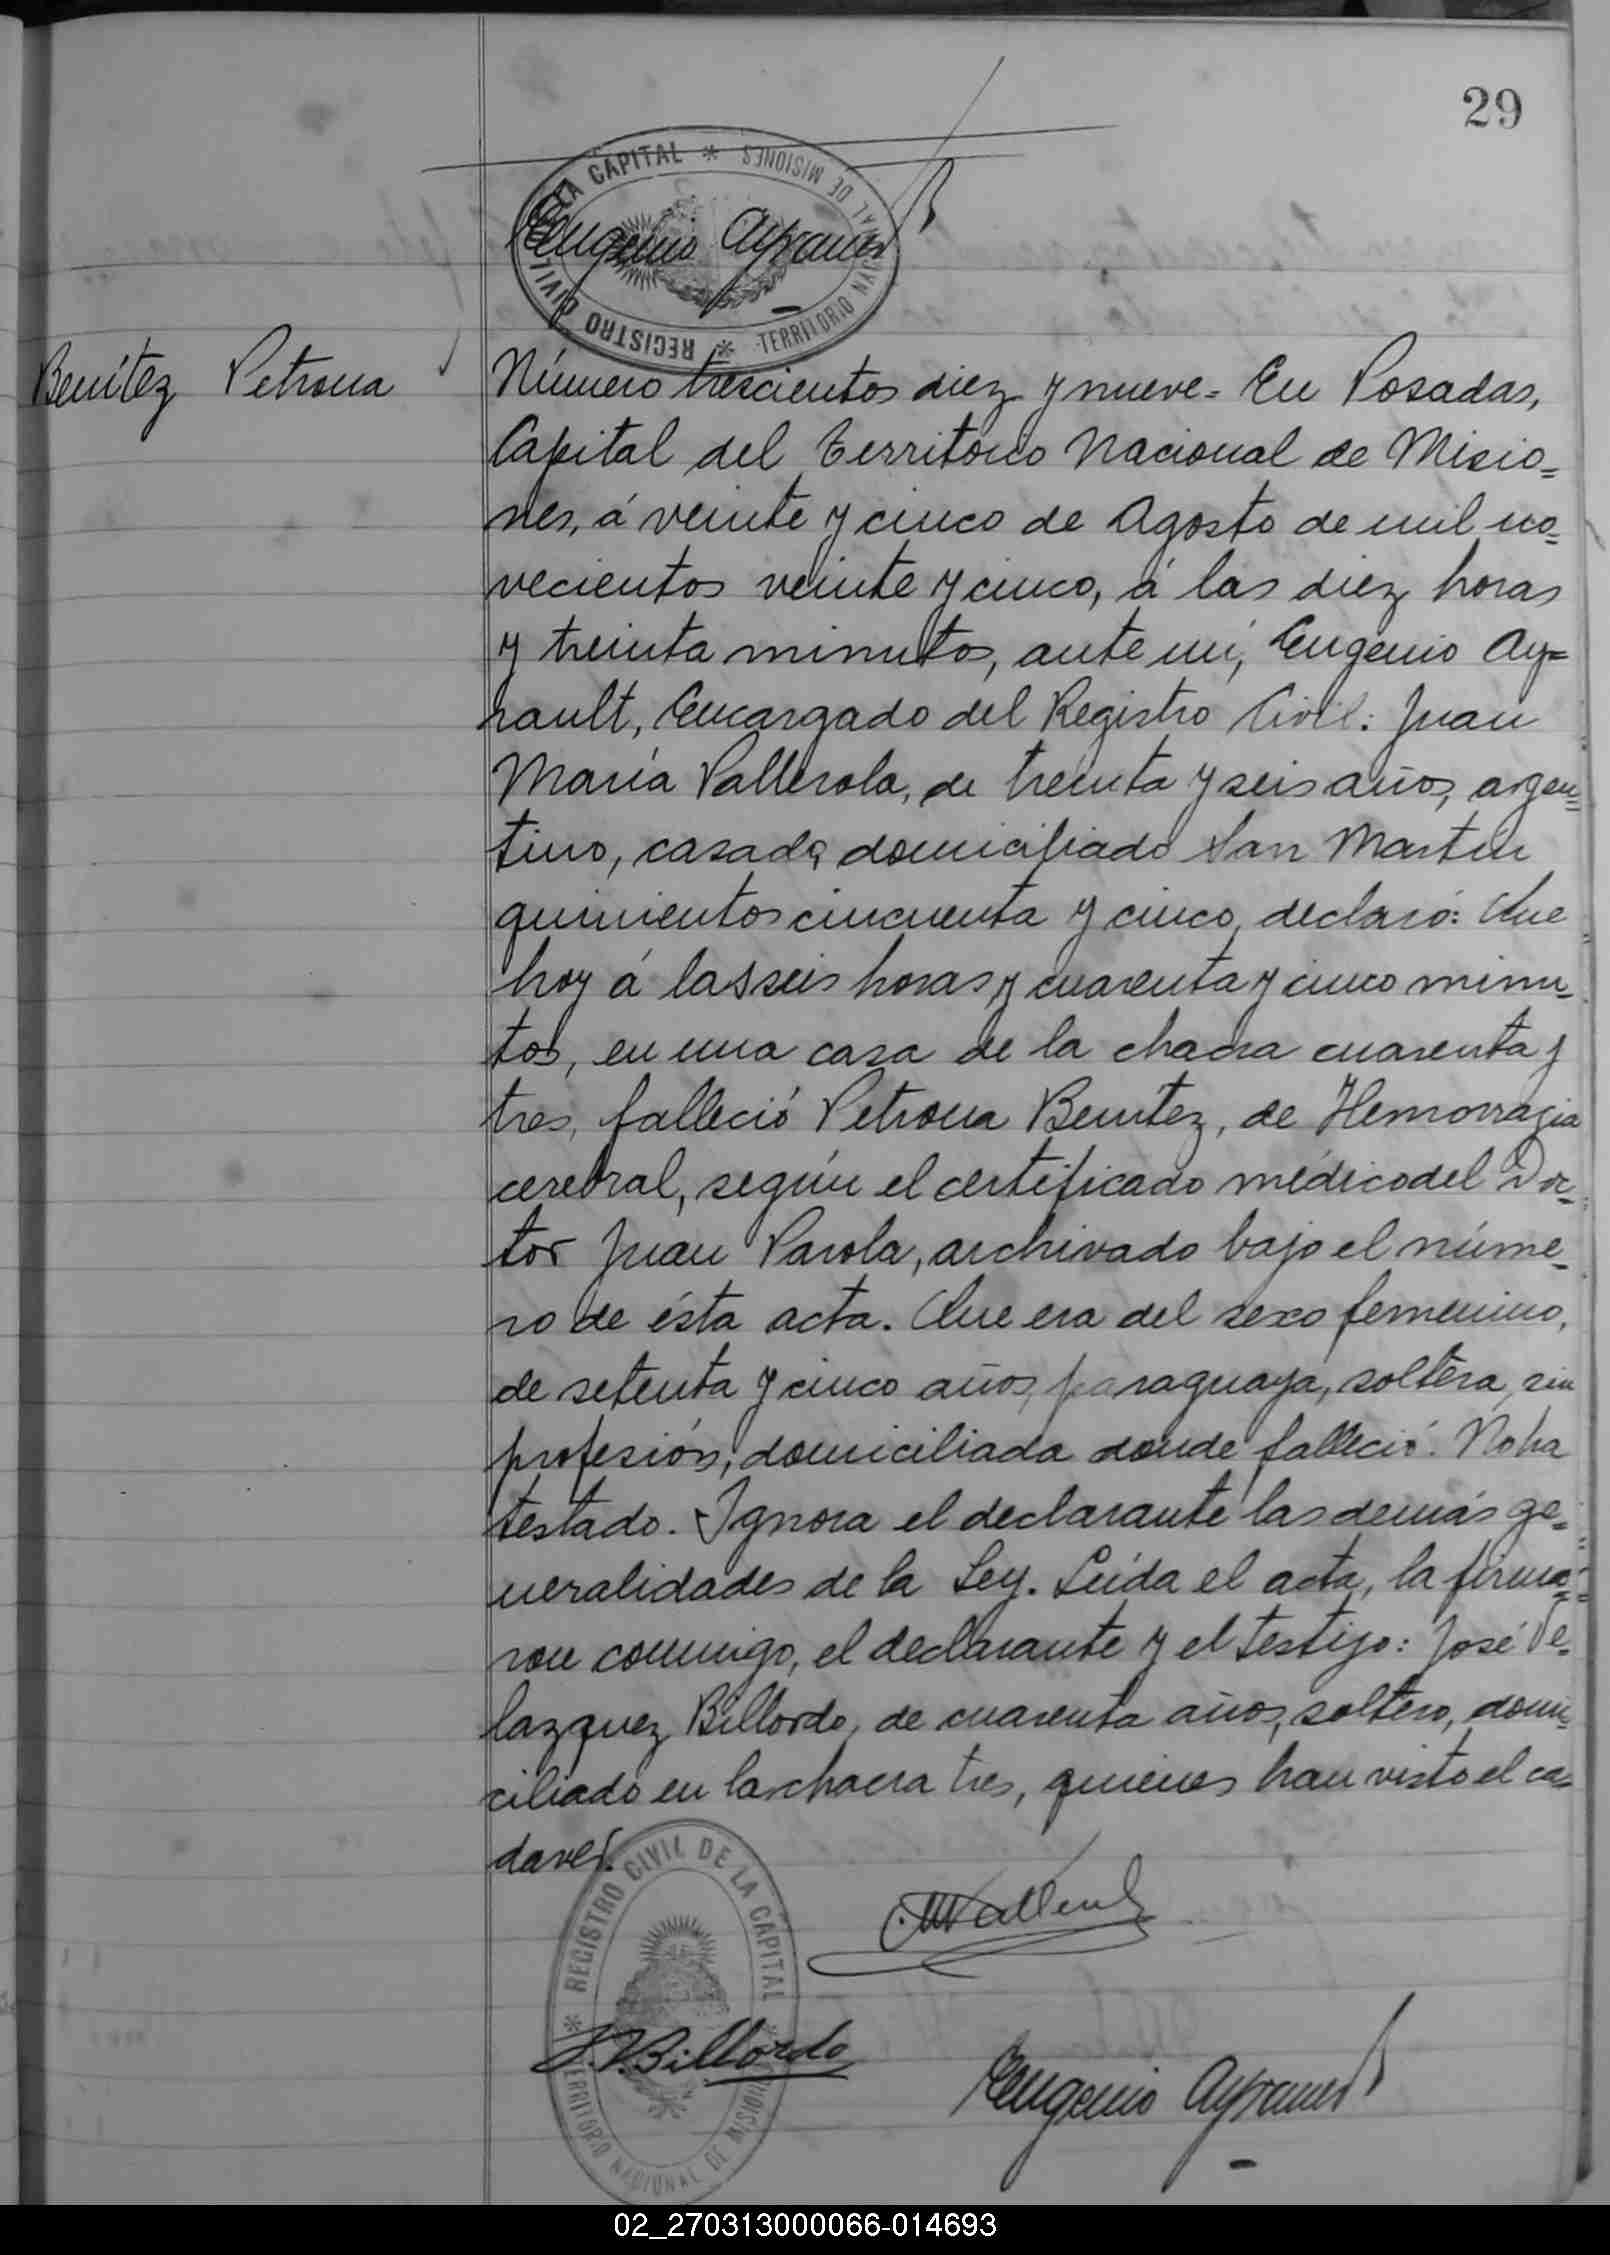 29
REGISTRO CIVIL DE LA CAPITAL * TERRITORIO NACIONAL DE MISIONES *
Eugenio
Benítez Petrona
Número trescientos diez y nueve - En Posadas,
Capital del Territorio Nacional de Misio=
nes, á veinte y cinco de Agosto de mil no=
vecientos veinte y cinco, á las diez horas
y treinta minutos, ante mí, Eugenio Ay=
rault, Encargado del Registro Civil: Juan
María Vallerola, de treinta y seis años, argen=
tino, casado, domiciliado San Martin
quinientos cincuenta y cinco, declaró: Que
hoy á las seis horas y cuarenta y cinco minu=
tos, en una casa de la chacra cuarenta y
tres, falleció Petrona Benítez, de Hemorragia
cerebral, según el certificado médico del Doc=
tor Juan Parola, archivado bajo el núme=
ro de ésta acta. Que era del sexo femenino,
de setenta y cinco años, paraguaya, soltera, sin
profesión, domiciliada donde falleció. No ha
testado. Ignora el declarante las demás ge=
neralidades de la Ley. Leída el acta, la firma=
ron conmigo, el declarante y el testigo: José Ve=
lazquez Billordo, de cuarenta años, soltero, domi=
ciliado en la chacra tres, quienes han visto el ca=
daver.
REGISTRO CIVIL DE LA CAPITAL * TERRITORIO NACIONAL DE MISIONES *
J.V.Billordo
Eugenio
02_270313000066-014693